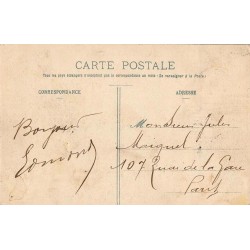 CARTE POSTALE
Tous les pays étrangers n'acceptent pas la correspondance au recto (Se renseigner à la Poste)
CORRESPONDANCE
ADRESSE
Bonjour
Edmond
Monsieur Jules
Muquet
107 Quai de la Gare
Paris